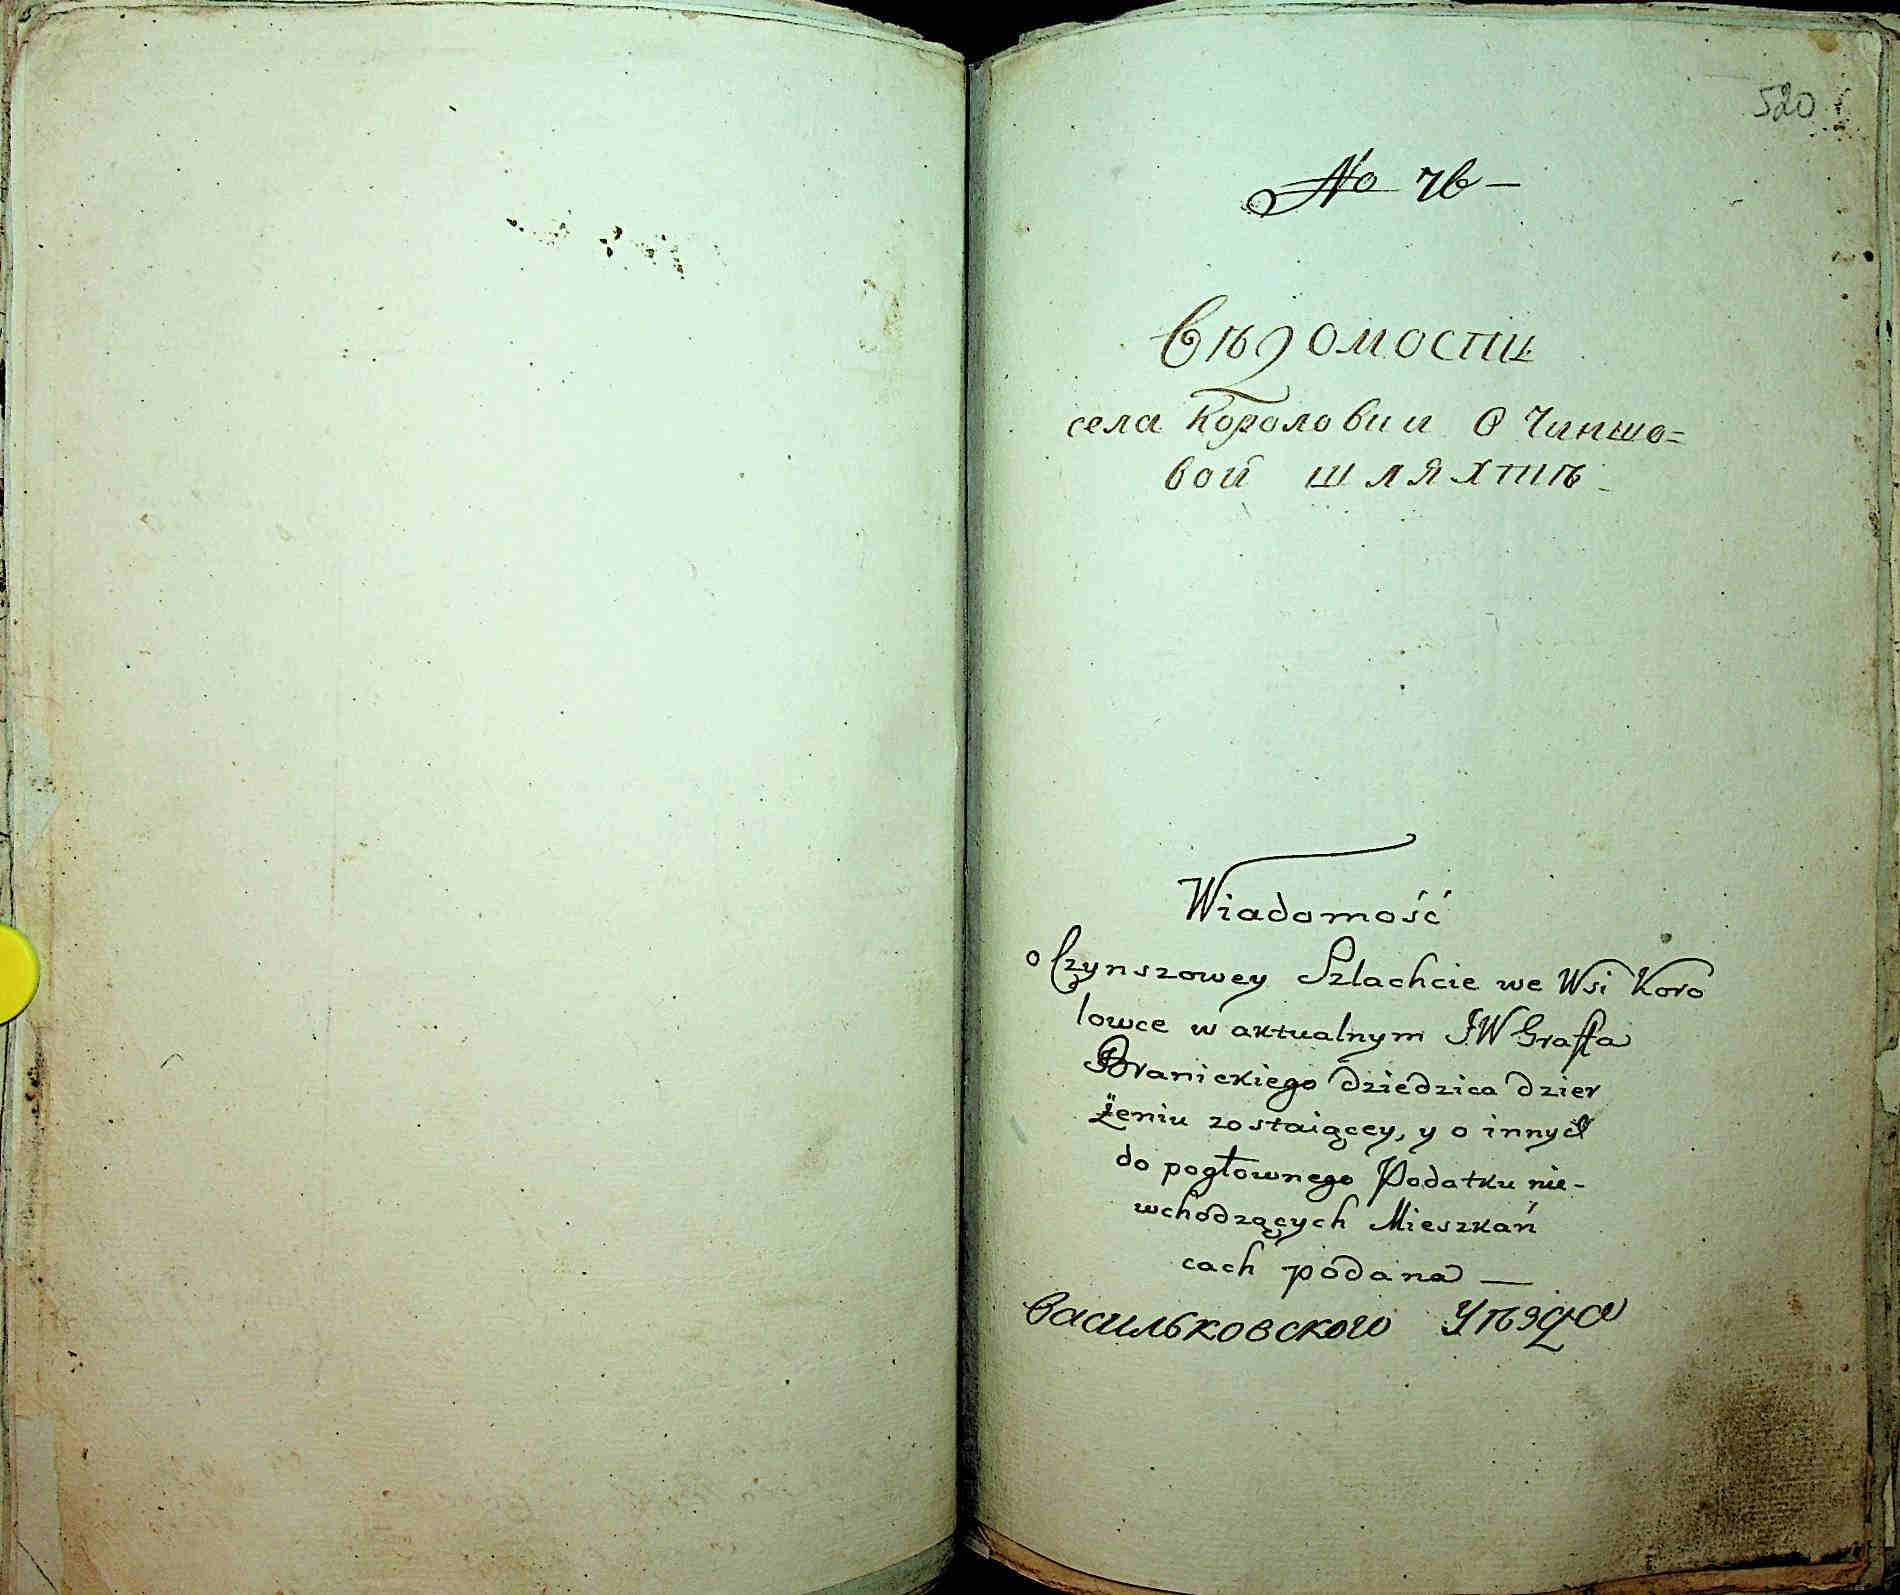 520
No 76 —
Вѣдомости
села Королӧвки о Чиншо=
вой шляхтѣ
Wiadomość
o Czynszowey Szlachcie we Wsi Koro
lowce w aktualnym J.W Graffa
Branickiego dziedzica dzier
żeniu zostaiącey, y o innych
do pogłownego Podatku nie-
wchodzących Mieszkań
cach podana —
Васильковского Уѣзда